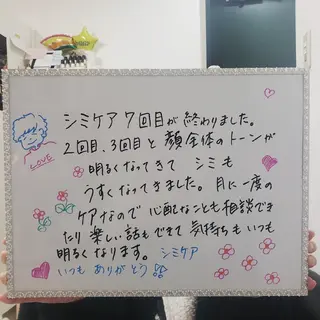 シミケア7回目が終わりました。
2回目、3回目と顔全体のトーンが
明るくなってきて シミも
うすくなってきました。月に一度の
ケアなので 心配なことも相談でき
たり 楽しい話もできて 気持ちもいつも
明るくなります。 シミケア
いつも ありがとう
LOVE